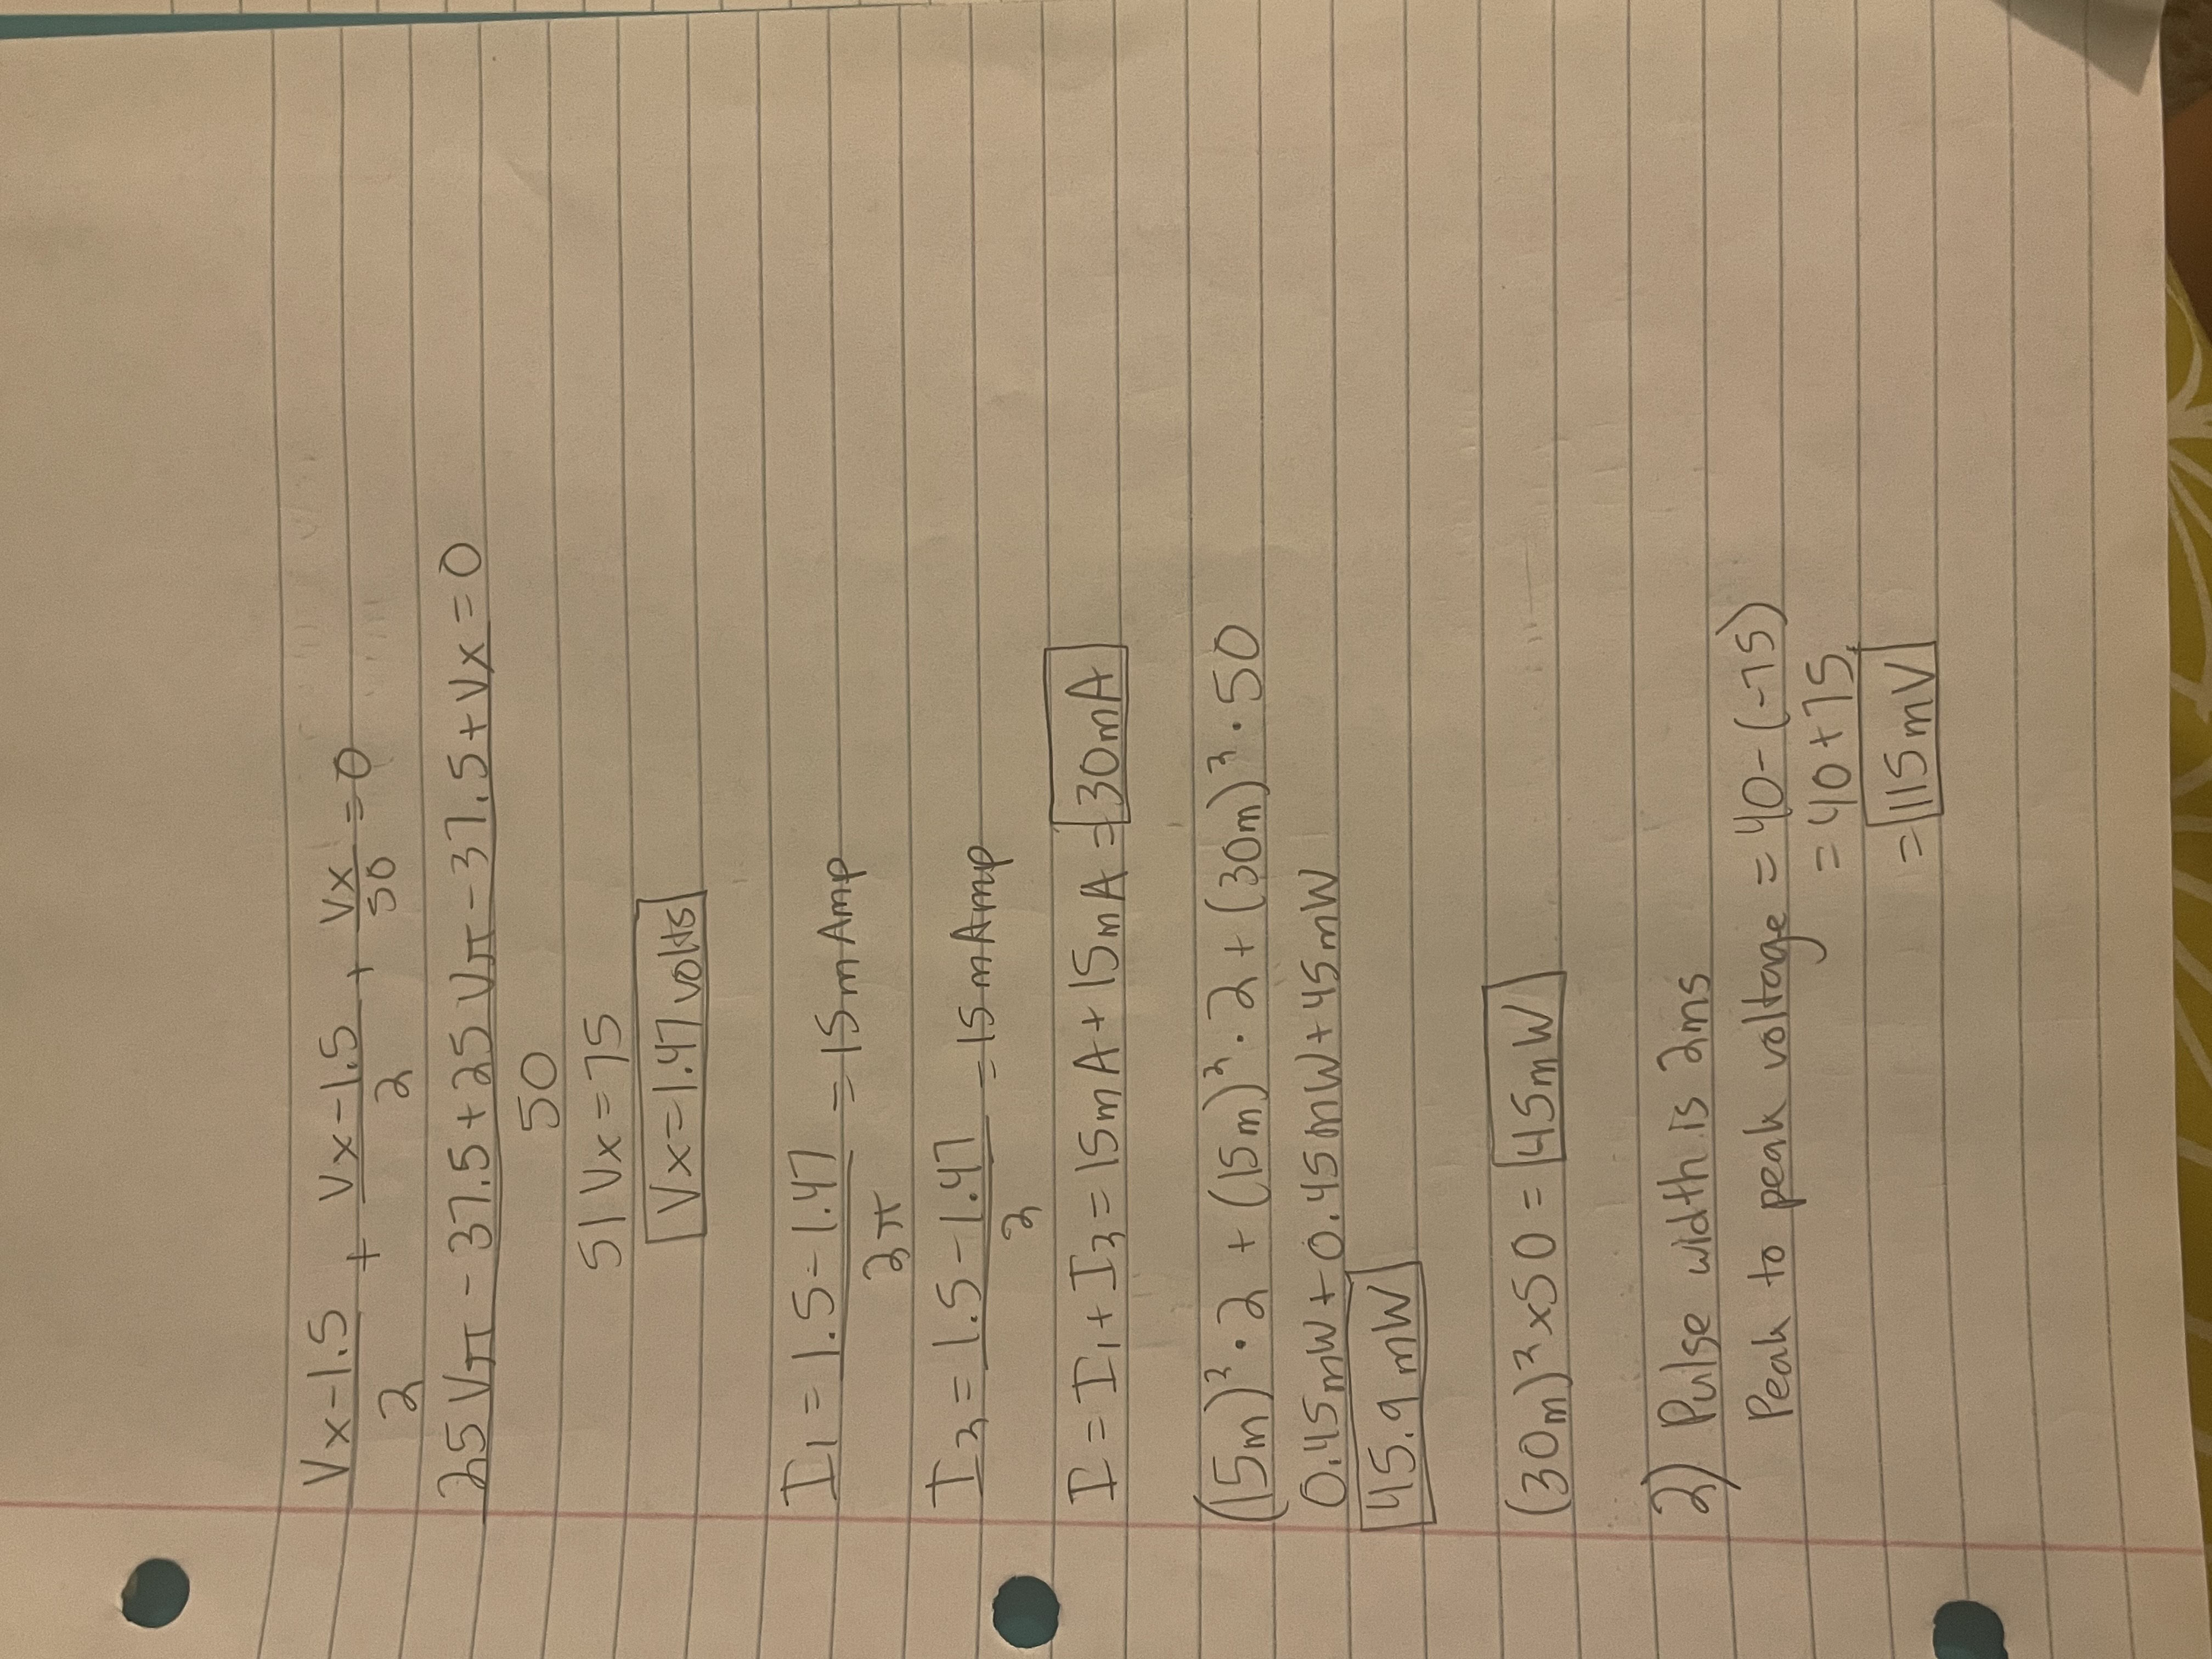 Vx-1.5/2 + Vx-1.5/2 + Vx/50 = 0
25Vπ - 37.5 + 25Vπ - 37.5 + Vx/50 = 0
51Vx = 75
Vx = 1.47 volts
I1 = 1.5-1.47/2π = 15m Amp
I2 = 1.5-1.47/2 = 15mAmp
I = I1 + I2 = 15mA + 15mA = 30mA
(15m)²·2 + (15m)²·2 + (30m)²·50
0.45mW + 0.45mW + 45mW
45.9mW
(30m)²x50 = 45mW
2) Pulse width is 2ms
Peak to peak voltage = 40-(-75)
= 40+75
= 115mV